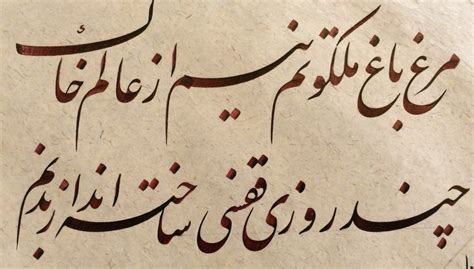 مرغ باغ ملکوتم نیم از عالم خاک
چند روزی قفسی ساخته‌اند از بدنم